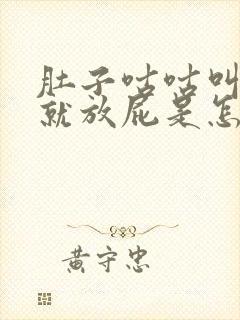 肚子咕咕叫
就放屁是怎
黄守忠